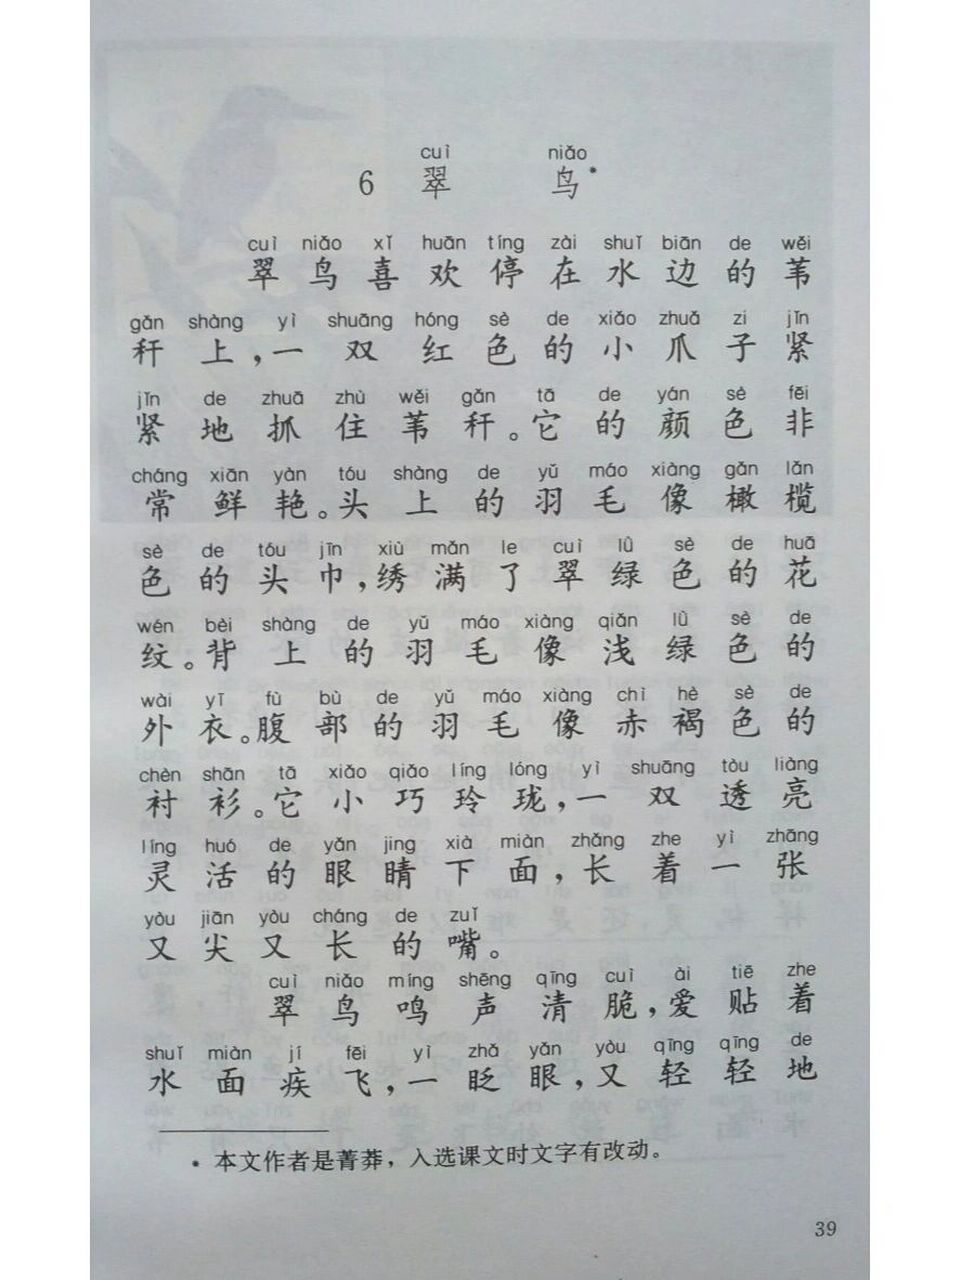 cuì niǎo
6 翠 鸟*
cuì niǎo xǐ huān tíng zài shuǐ biān de wěi
翠鸟喜欢停在水边的苇
gǎn shàng yì shuāng hóng sè de xiǎo zhuǎ zi jǐn
秆上，一双红色的小爪子紧
jǐn de zhuā zhù wěi gǎn tā de yán sè fēi
紧地抓住苇秆。它的颜色非
cháng xiān yàn tóu shàng de yǔ máo xiàng gǎn lǎn
常鲜艳。头上的羽毛像橄榄
sè de tóu jīn xiù mǎn le cuì lǜ sè de huā
色的头巾，绣满了翠绿色的花
wén bèi shàng de yǔ máo xiàng qiǎn lǜ sè de
纹。背上的羽毛像浅绿色的
wài yī fù bù de yǔ máo xiàng chì hè sè de
外衣。腹部的羽毛像赤褐色的
chèn shān tā xiǎo qiǎo líng lóng yì shuāng tòu liàng
衬衫。它小巧玲珑，一双透亮
líng huó de yǎn jing xià miàn zhǎng zhe yì zhāng
灵活的眼睛下面，长着一张
yòu jiān yòu cháng de zuǐ
又尖又长的嘴。
cuì niǎo míng shēng qīng cuì ài tiē zhe
翠鸟鸣声清脆，爱贴着
shuǐ miàn jí fēi yì zhǎ yǎn yòu qīng qīng de
水面疾飞，一眨眼，又轻轻地
* 本文作者是菁莽，入选课文时文字有改动。
39